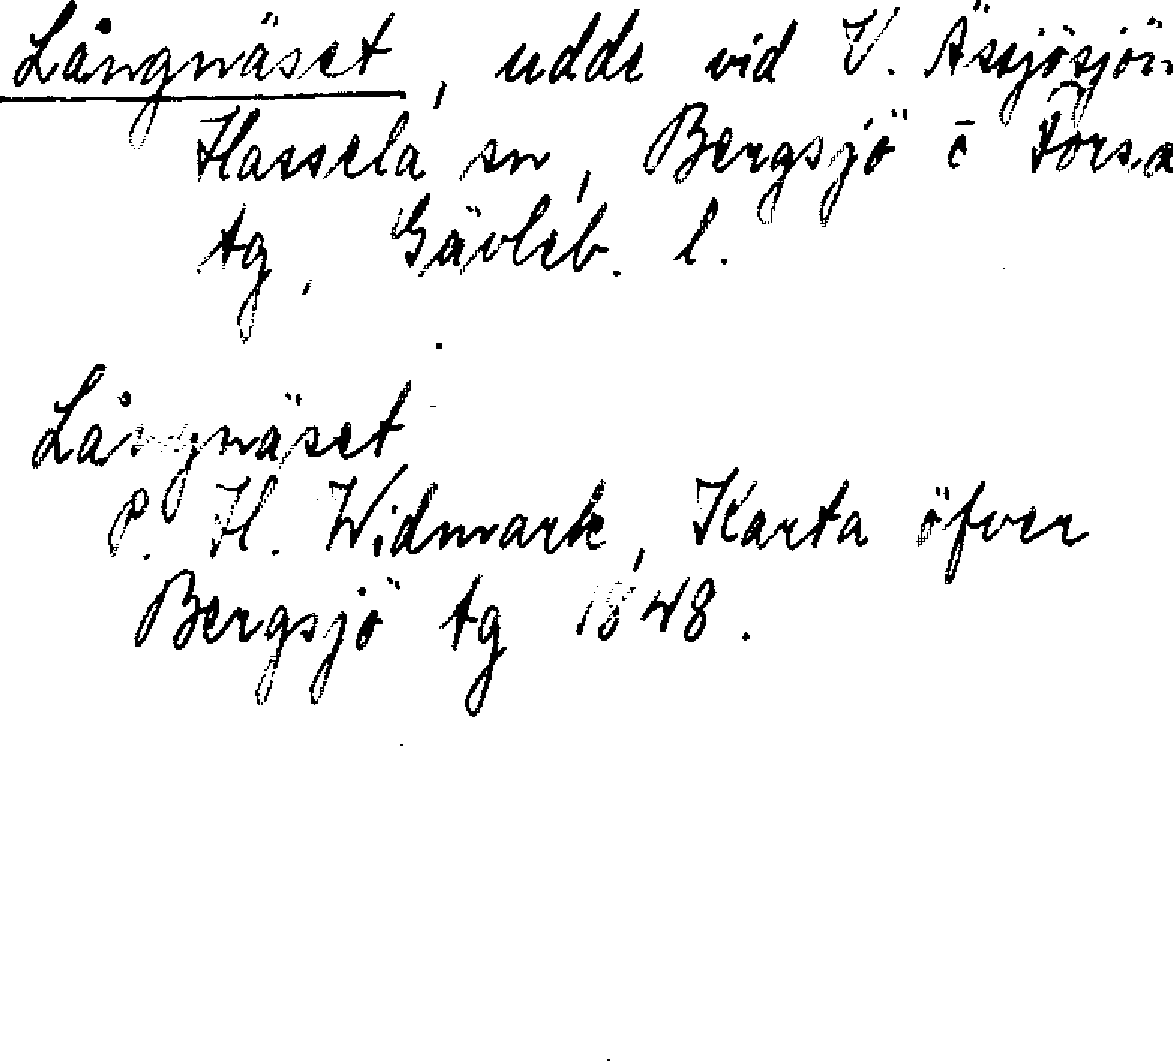 Långnäset, udde vid V. Ässjösjön
Hassela sn, Bergsjö c̄ Forsa
tg, Gävleb. l.
Långnäset
P. H. Widmark, Karta öfver
Bergsjö tg 1848.